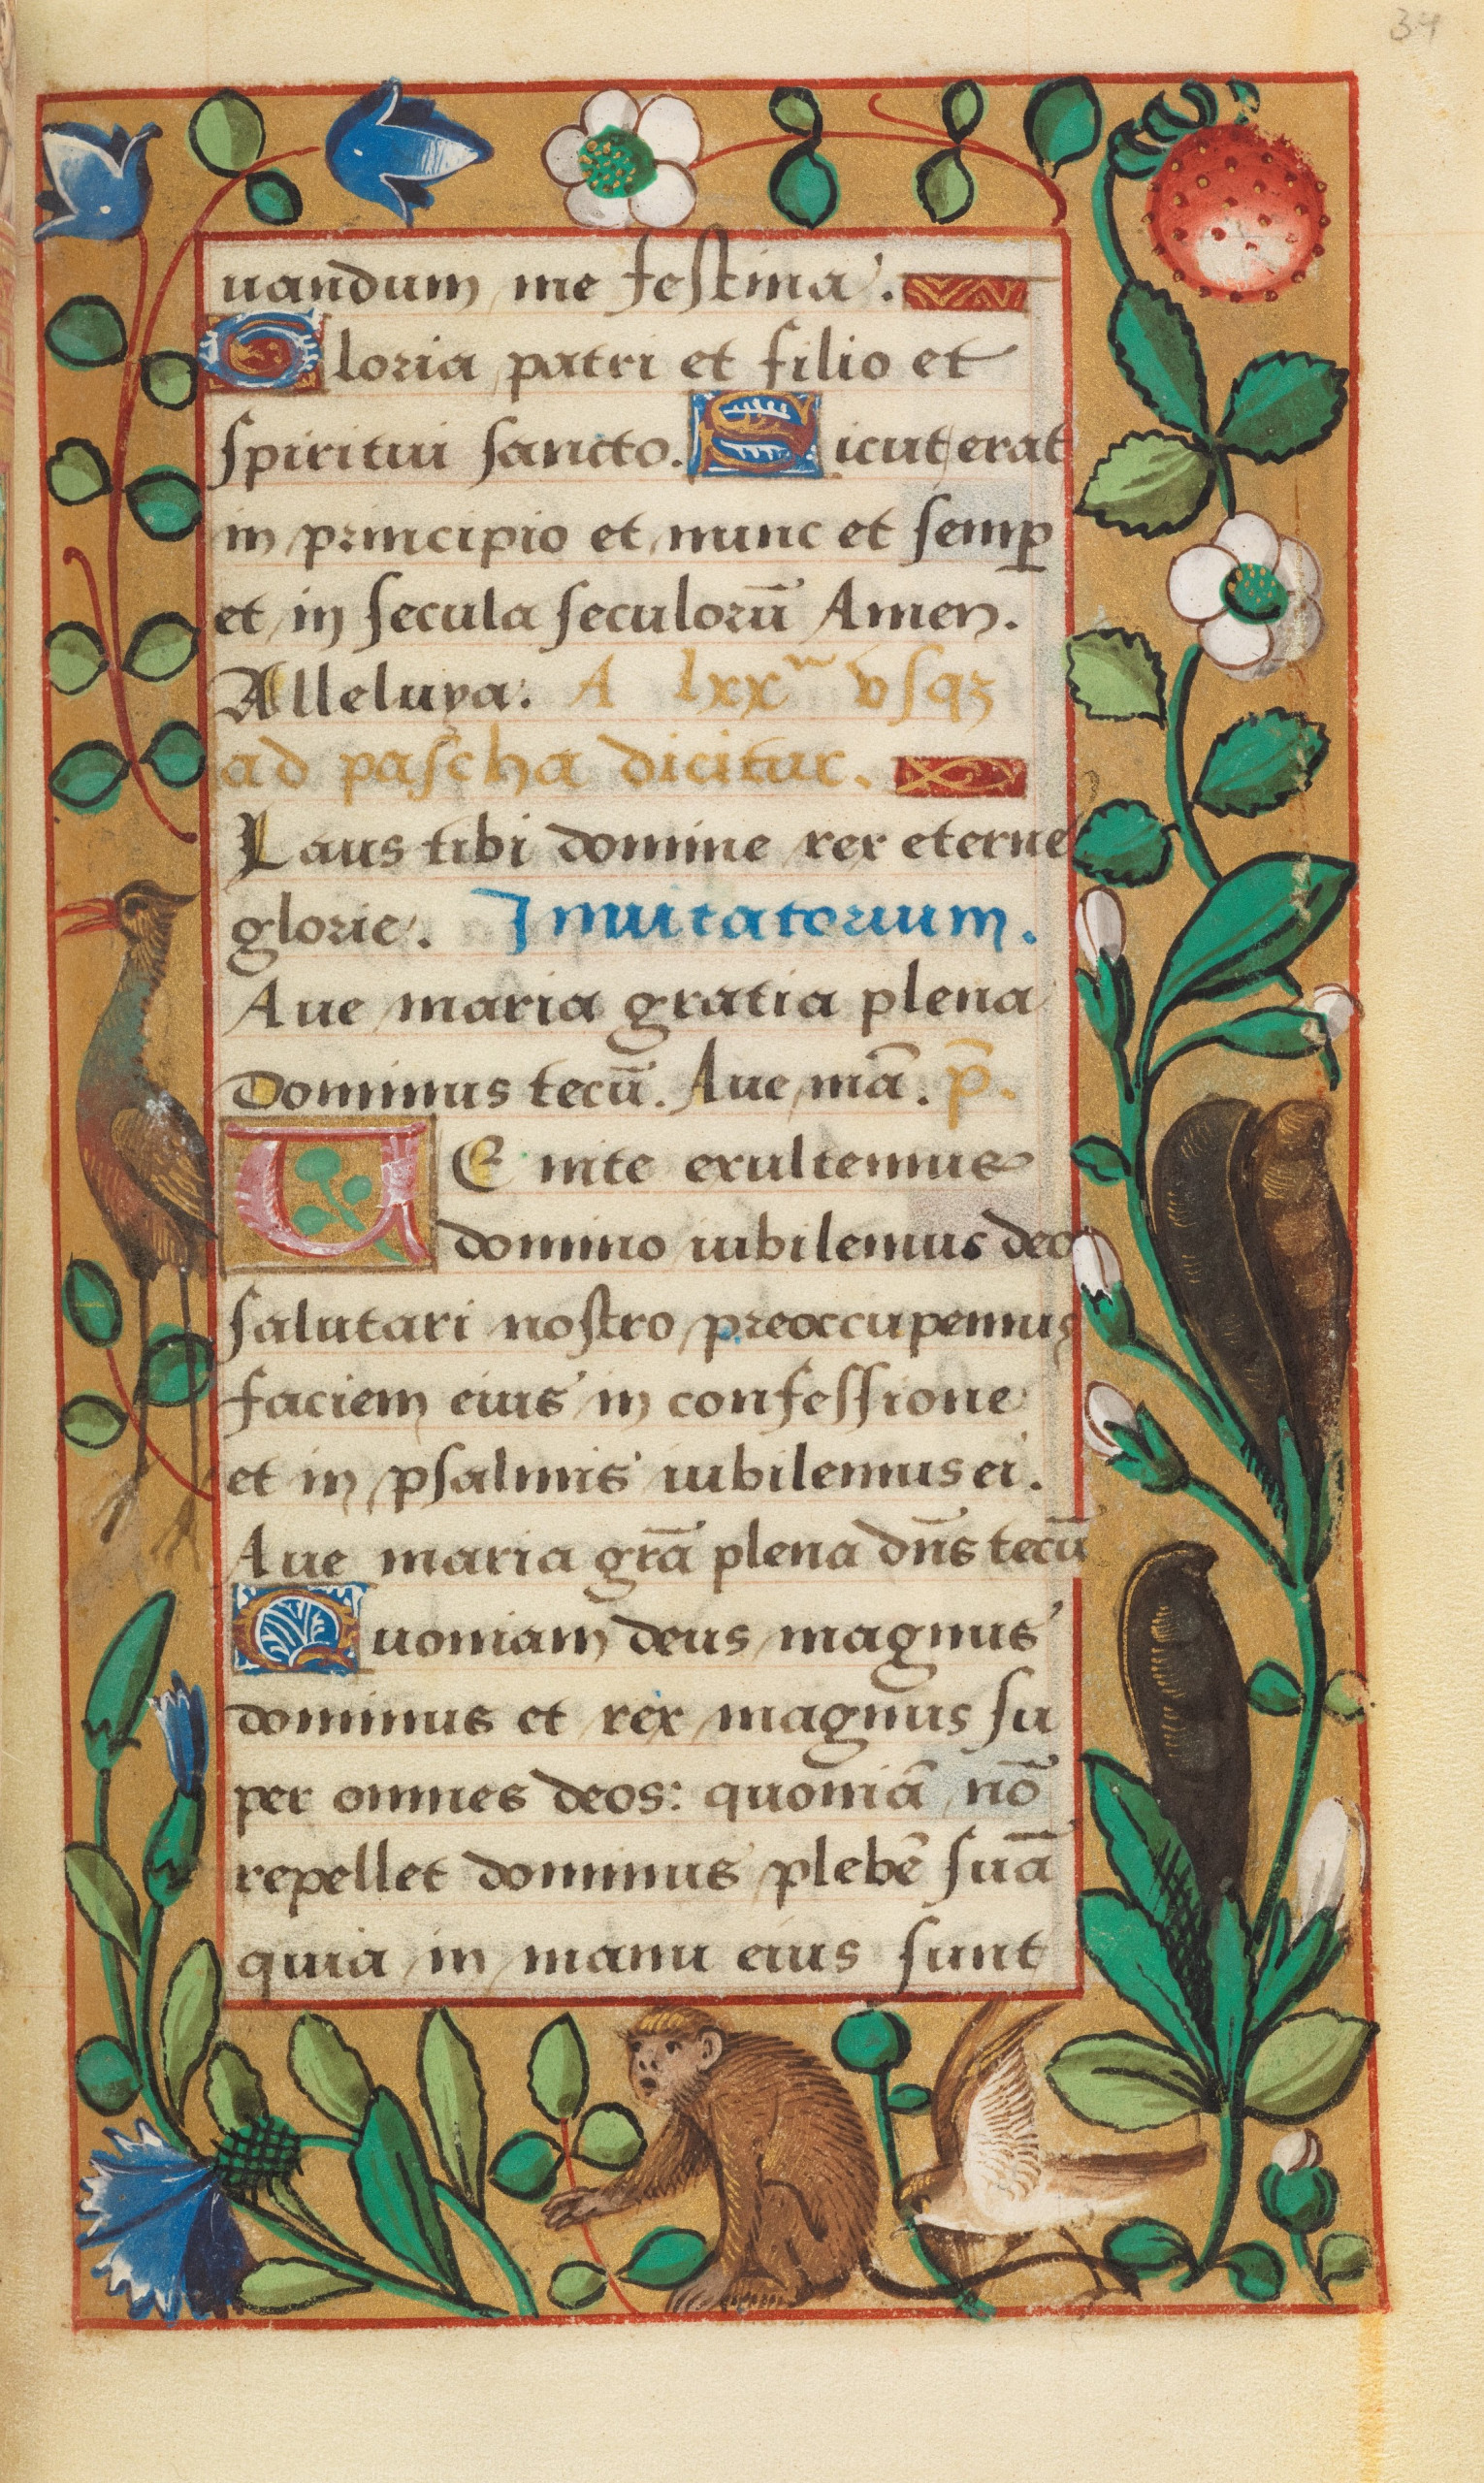 34
uandum me festina.
Gloria patri et filio et
spiritui sancto. Sicut erat
in principio et nunc et semꝑ
et in secula seculorū Amen.
Alleluya. A lxxᵐ vsqꝫ
ad pascha dicitur.
Laus tibi domine rex eterne
glorie. Inuitatorium.
Aue maria gratia plena
Dominus tecū. Aue mā. p̄.
VEnite exultemus
domino iubilemus deo
salutari nostro preoccupemus
faciem eius in confessione
et in psalmis iubilemus ei.
Aue maria grā plena dn̄s tecū
Quoniam deus magnus
dominus et rex magnus su
per omnes deos: quoniā nō
repellet dominus plebē suā
quia in manu eius sunt